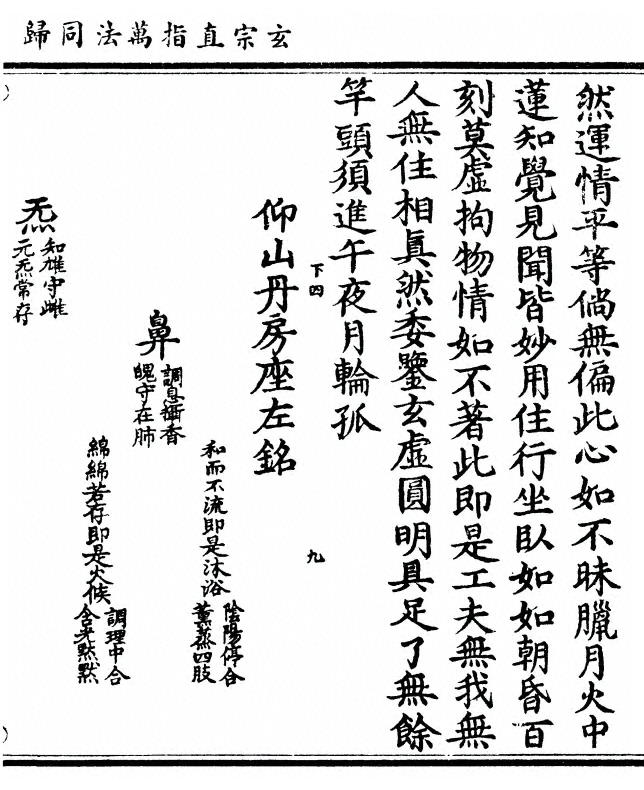 玄宗直指萬法同歸
然運情平等倘無偏此心如不昧臘月火中
蓮知覺見聞皆妙用住行坐臥如如朝昏百
刻莫虛拘物情如不著此即是工夫無我無
人無住相眞然委鑒玄虛圓明具足了無餘
竿頭須進午夜月輪孤
下四
九
仰山丹房座左銘
和而不流即是沐浴
陰陽停合
薰蒸四肢
鼻
調息攝香
魄守在肺
綿綿若存即是火候
調理中合
含光默默
炁
知雄守雌
元炁常存